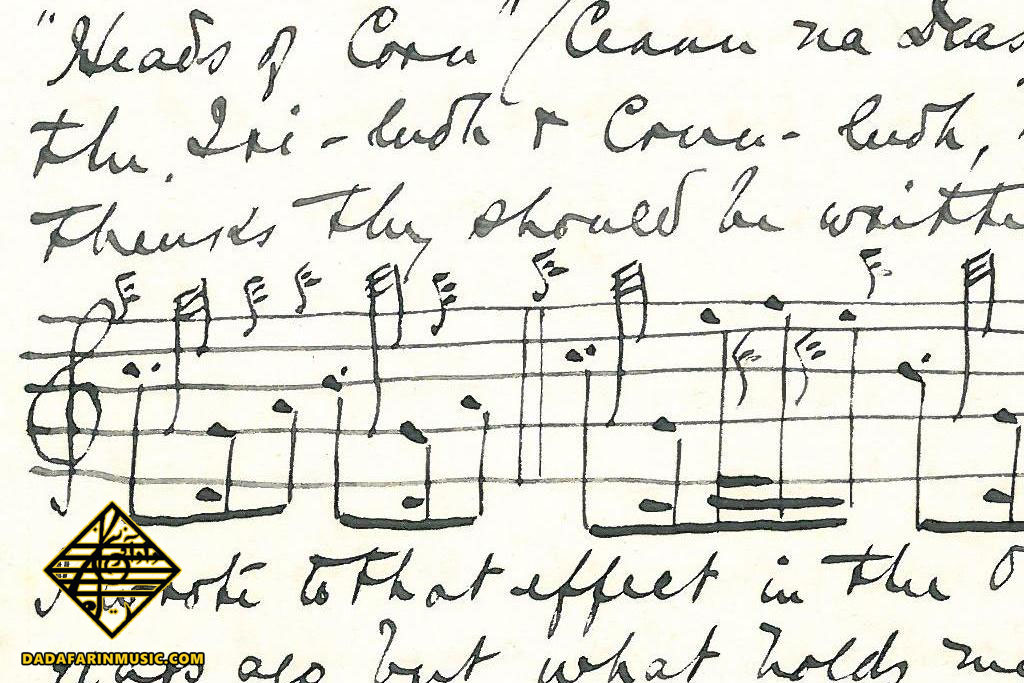 "Heads of Corn" (Ceann na Deas
the Iri-ludh & Crun-ludh,
thinks they should be writte
I wrote to that effect in the O
years ago but what holds me
DADAFARINMUSIC.COM